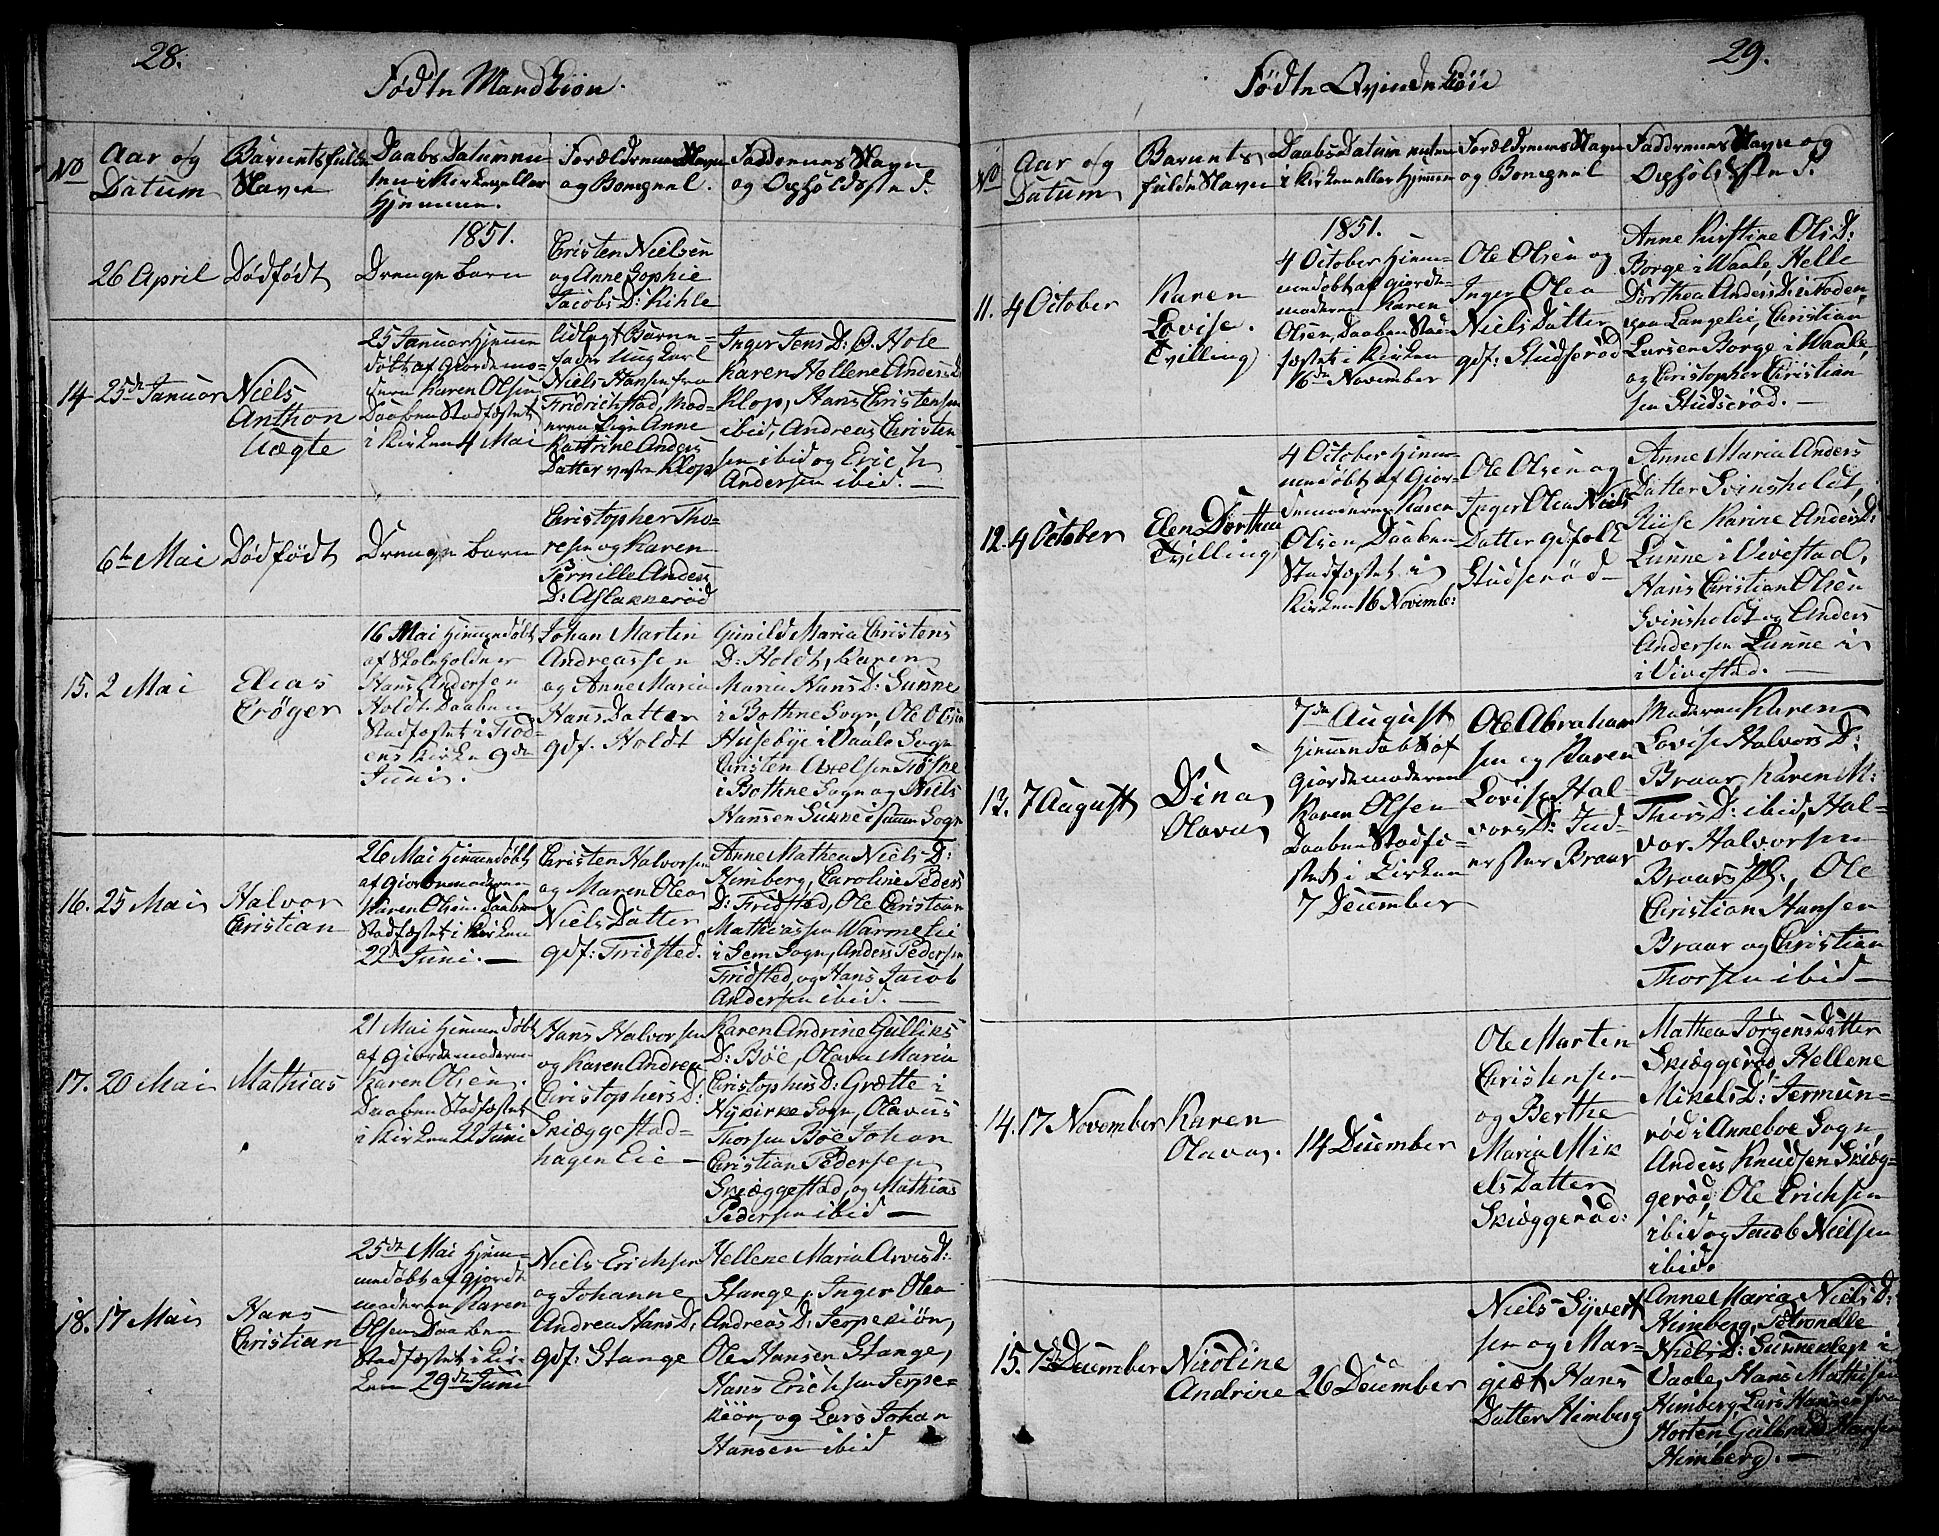 28.
Fødte Mandkiön.
No
Aar og
Datum
Barnets fulde
Navn
Daabs Datum en-
ten i Kirken eller
Hjemmen.
Forældrenes Navn
og Bopæl.
Faddrenes Navn
og Opholdssted.
1851.
26 April
Dødfödt
Drenge barn
Christen Nielsen
og Anne Sophie
Jacobs D: Kihle
14
25de Januar
Niels
Anthon
Uægte
25 Januar Hjemme
döbt af Giordemo-
deren Karen Olsen
Daaben Stadfæstet
i Kirken 4 Mai
Udlagt Barne-
fader Ung Carl
Niels Hansen fra
Fridrichstad, Mod-
eren Pige Anne
Kathrine Anders
Datter vestre Klop
Inger Jens D: Ø. Hole
Karen Hellene Anders D
Klop, Hans Christensen
ibid, Andreas Christen
sen ibid og Erich
Andersen ibid. —
6te Mai
Dødfödt
Drenge barn
Christopher Tho-
resen og Karen
Pernille Anders
D: Aslakneröd
15.
2 Mai
Elias
Crøger
16 Mai Hjemmedöbt
af Skoleholder
Hans Andersen
Holdt Daaben
Stadfæstet i Nod-
ens Kirke 9de
Juni.
Johan Martin
Andreassen
og Anne Maria
Hans Datter
gdf. Holdt
Gunild Maria Christens
D: Holdt, Karen
Maria Hans D: Sunne
i Bothne Sogn, Ole Olsen
Husebye i Vaale Sogn
Christen Axelsen
i Bothne Sogn og Niels
Hansen Sunne i samme Sogn
16.
25 Mai
Halvor
Christian
26 Mai Hjemmedöbt
af Giordemoderen
Karen Olsen Daaben
Stadfæstet i Kirken
22de Juni. —
Christen Halvorsen
og Maren Olea
Niels Datter
gdf: Fridsted.
Anne Mathea Niels D:
Himberg, Caroline Peders
D: Fridstad, Ole Christian
Mathiassen Warmelie
i Sem Sogn, Anders Pedersen
Fridsted og Hans Jacob
Andersen ibid. —
17.
20 Mai
Mathias
21 Mai Hjemmedöbt
af Giordemoderen
Karen Olsen.
Daaben Stadfæstet
i Kirken 22 Juni
Hans Halvorsen
og Karen Andrea
Christophers D:
Skiæggestad-
hagen Eie —
Karen Andrine Gulliks
D: Böe, Olava Maria
Christophers D: Grætte i
Nykirke Sogn, Olavus
Thorsen Böe Johan
Christian Pedersen
Skiæggestad, og Mathias
Pedersen ibid —
18.
17 Mai
Hans
Christian
25de Mai Hjem-
medöbt af Gjorde
moderen Karen
Olsen Daaben
Stadfæstet i Kir-
ken 29de Juni
Niels Erichsen
og Johanne
Andrea Hans D:
gdf: Stange
Hellene Maria Arvis D:
Stange, Inger Olea
Andreas D: Jerpekiön,
Ole Hansen Stange,
Hans Erichsen Jerpe-
kiön, og Lars Johan
Hansen ibid
29.
Födte Qvindekiön
No
Aar og
Datum
Barnets
fulde Navn
Daabs Datum enten
i Kirken eller Hjemmen
Forældrenes Navn
og Bopæl
Faddrenes Navn og
Opholdssted.
1851.
11.
4 October
Karen
Lovise.
Tvilling
4 October Hjem-
medöbt af Giorde
moderen Karen
Olsen, Daaben Stad-
fæstet i Kirken
16de November
Ole Olsen og
Inger Olea
Niels Datter
gdf: Studseröd
Anne Kirstine Ols D:
Borge i Waale, Helle
Dorthea Anders D: i Noden,
paa Langelie, Christian
Larsen Borge i Waale,
og Christopher Christian
sen Studseröd. —
12.
4 October
Elen Dorthea
Tvilling
4 October Hjem-
medöbt af Gior-
demoderen Karen
Olsen, Daaben
Stadfæstet i
Kirken 16 Novemb:
Ole Olsen og
Inger Olea Niels
Datter gdfolk
Studseröd —
Anne Maria Anders
Datter Svinsholdt,
Karine Anders D:
Lunne i Vivestad,
Hans Christian Olsen
Svinsholdt og Anders
Andersen Lunne i
i Vivestad. —
13.
7 August
Dina
Olava
7de August
Hjemmedöbt af
Giordemoderen
Karen Olsen
Daaben Stadfæ-
stet i Kirken
7 December
Ole Abraham
sen og Karen
Lovise Hal-
vors D: Ind-
erster Braar
Moderen Karen
Lovise Halvors D:
Braar, Karen M:
Thors D: ibid, Hal-
vor Halvorsen
Braars, Ole
Christian Hansen
Braar og Christian
Thorsen ibid —
14.
17 November
Karen
Olava.
14 December
Ole Martin
Christensen
og Berthe
Maria Mik
els Datter
Skiæggeröd:
Mathea Jörgens Datter
Skiæggeröd, Hellene
Mikels D: Jermun-
röd i Anneboe Sogn,
Anders Knudsen Skiæg-
geröd, Ole Erichsen
ibid og Jacob Nielsen
ibid.
15.
7de December
Nicoline
Andrine
26 December
Niels Syvert
sen og Mar-
giæt Hans
Datter Himberg
Anne Maria Niels D:
Himberg, Petronelle
Niels D: Sunneklep i
Vaale, Hans Mathisen
Himberg, Lars Hansen fra
Horten, Gulbrand Hansen
Himberg. —